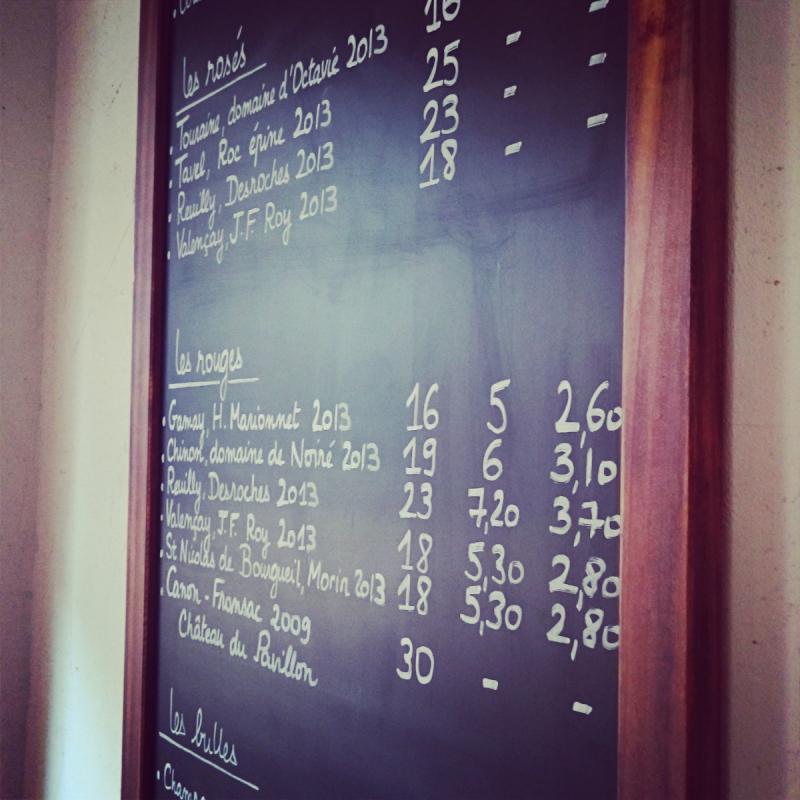 les rosés
• Touraine, domaine d'Octavie 2013 16
• Tavel, Roc épine 2013 25 - -
• Reuilly, Desroches 2013 23 - -
• Valençay, J.F. Roy 2013 18 - -
les rouges
• Gamay, H. Marionnet 2013 16 5 2,60
• Chinon, domaine de Noiré 2013 19 6 3,10
• Reuilly, Desroches 2013 23 7,20 3,70
• Valençay, J.F. Roy 2013 18 5,30 2,80
• St Nicolas de Bourgueil, Morin 2013 18 5,30 2,80
• Canon-Fronsac 2009
Château du Pavillon 30 - -
les bulles